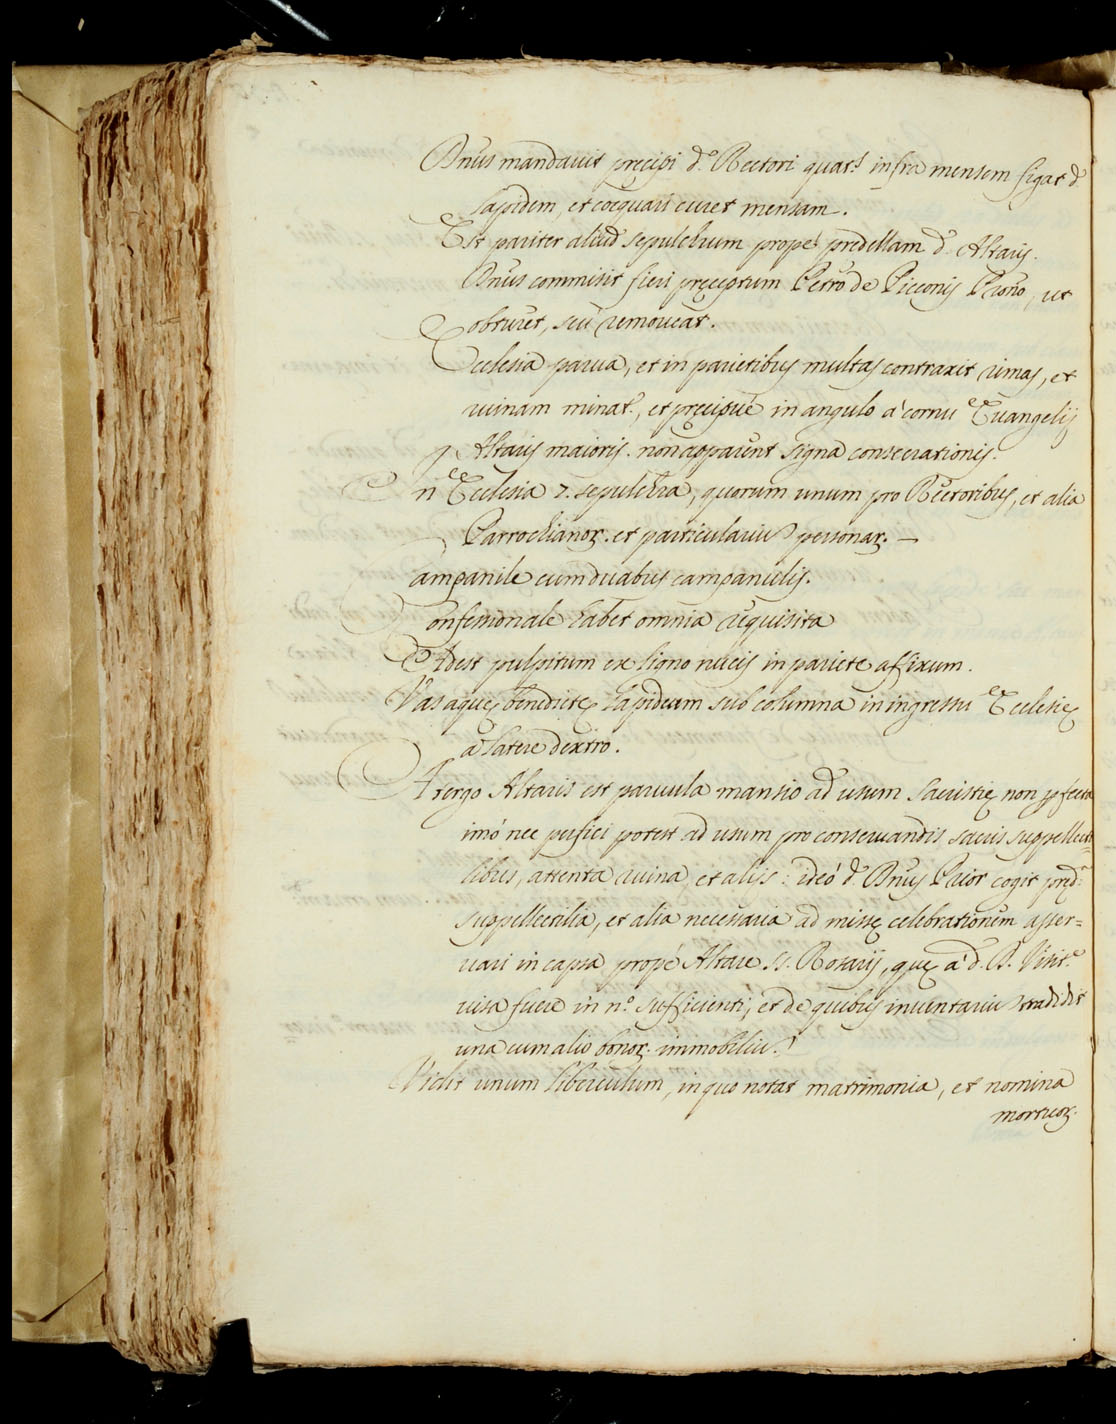 Dnus mandavit precipi d.° Rectori quat.s infra mensem figat d.
lapidem, et coequari curet mensam.
Est pariter aliud sepulchrum propè predellam d. Altaris.
Dnus commisit fieri preceptum Petro de Picconis Prono, ut
obturet, seu removeat.
Ecclesia parva, et in parietibus multas contraxit rimas, et
ruinam minat., et precipuè in angulo à cornu Evangelij
Altaris maioris. non apparent signa consecrationis.
In Ecclesia 7. sepulchra, quorum unum pro Rectoribus, et alia
Parrochianoꝝ. et particulariu personaꝝ. —
Campanile cum duabus campanulis.
Confessionale habet omnia requisita
Adest pulpitum ex ligno nucis in pariete affixum.
Vas aquę benedictę lapideum sub columna in ingressu Ecclesię
à latere dextro.
A tergo Altaris est parvula mansio ad usum sacristię non perfecta
imò nec perfici potest ad usum pro conservandis sacris suppellecti=
libus, attenta ruina, et alijs: ideò d. Dnus Prior cogit pred.a
suppellectilia, et alia necessaria ad missę celebrationem asser=
vari in capsa propè Altare SS. Rosarij, quę à d. D. Visit.e
visa fuere in n.° sufficienti, et de quibus inventariu tradidit
una cum alio bonoꝝ. immobiliu.
Vidit unum liberculum, in quo notat matrimonia, et nomina
mortuoꝝ.